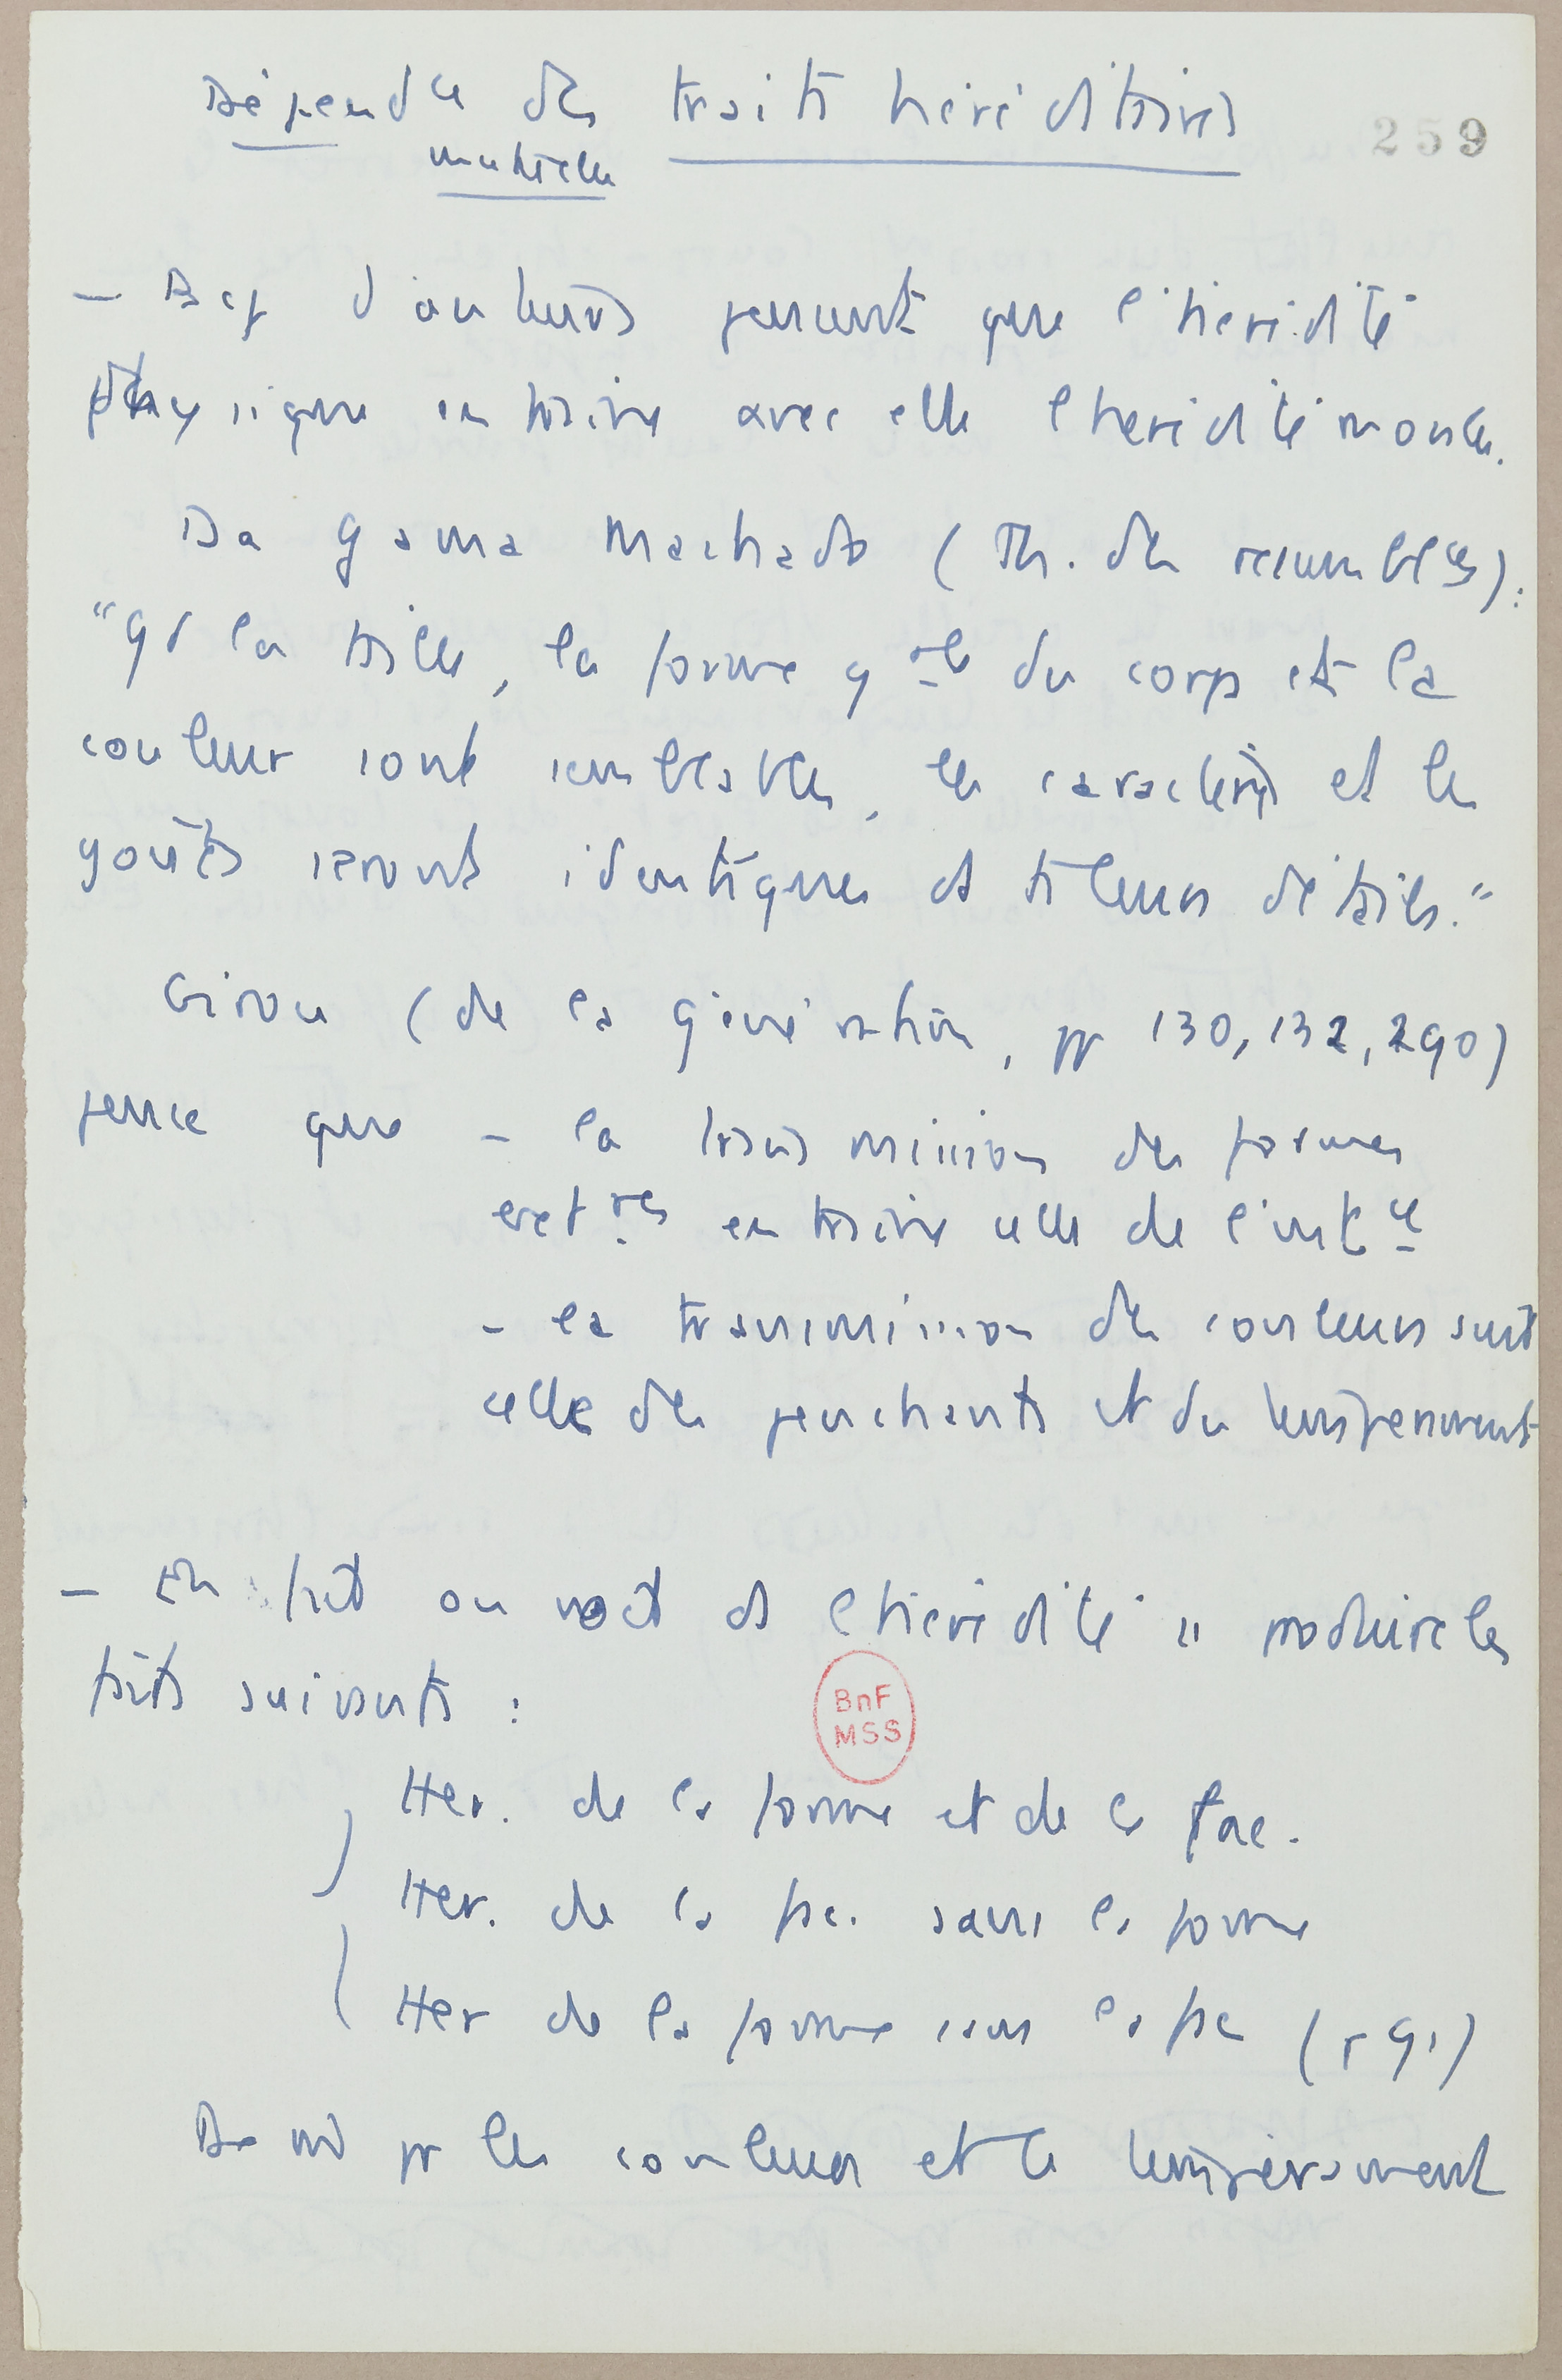 Dépendce des traits héréditaires
mutuelle
259
- Bcp d'auteurs pensent que l'hérédité
physique entraine avec elle l'hérédité morale.
Da Gama Machado (Th. des ressemblces) :
"Qd la taille, la forme gale du corps et la
couleur sont semblables, les caractères et les
goûts seront identiques ds ts leurs détails."
Girou (de la génération, pp 130, 132, 290)
pense que - la transmission des formes
extres entraine celle de l'intce
- la transmission des couleurs suit
celle des penchants et du tempérament
- En fait on voit ds l'hérédité se produire les
faits suivants :
BnF
MSS
Her. de la forme et de la fac.
Her. de la fac. sans la forme
Her de la forme sans la fac (p 91)
De m̂ pr les couleurs et le tempérament